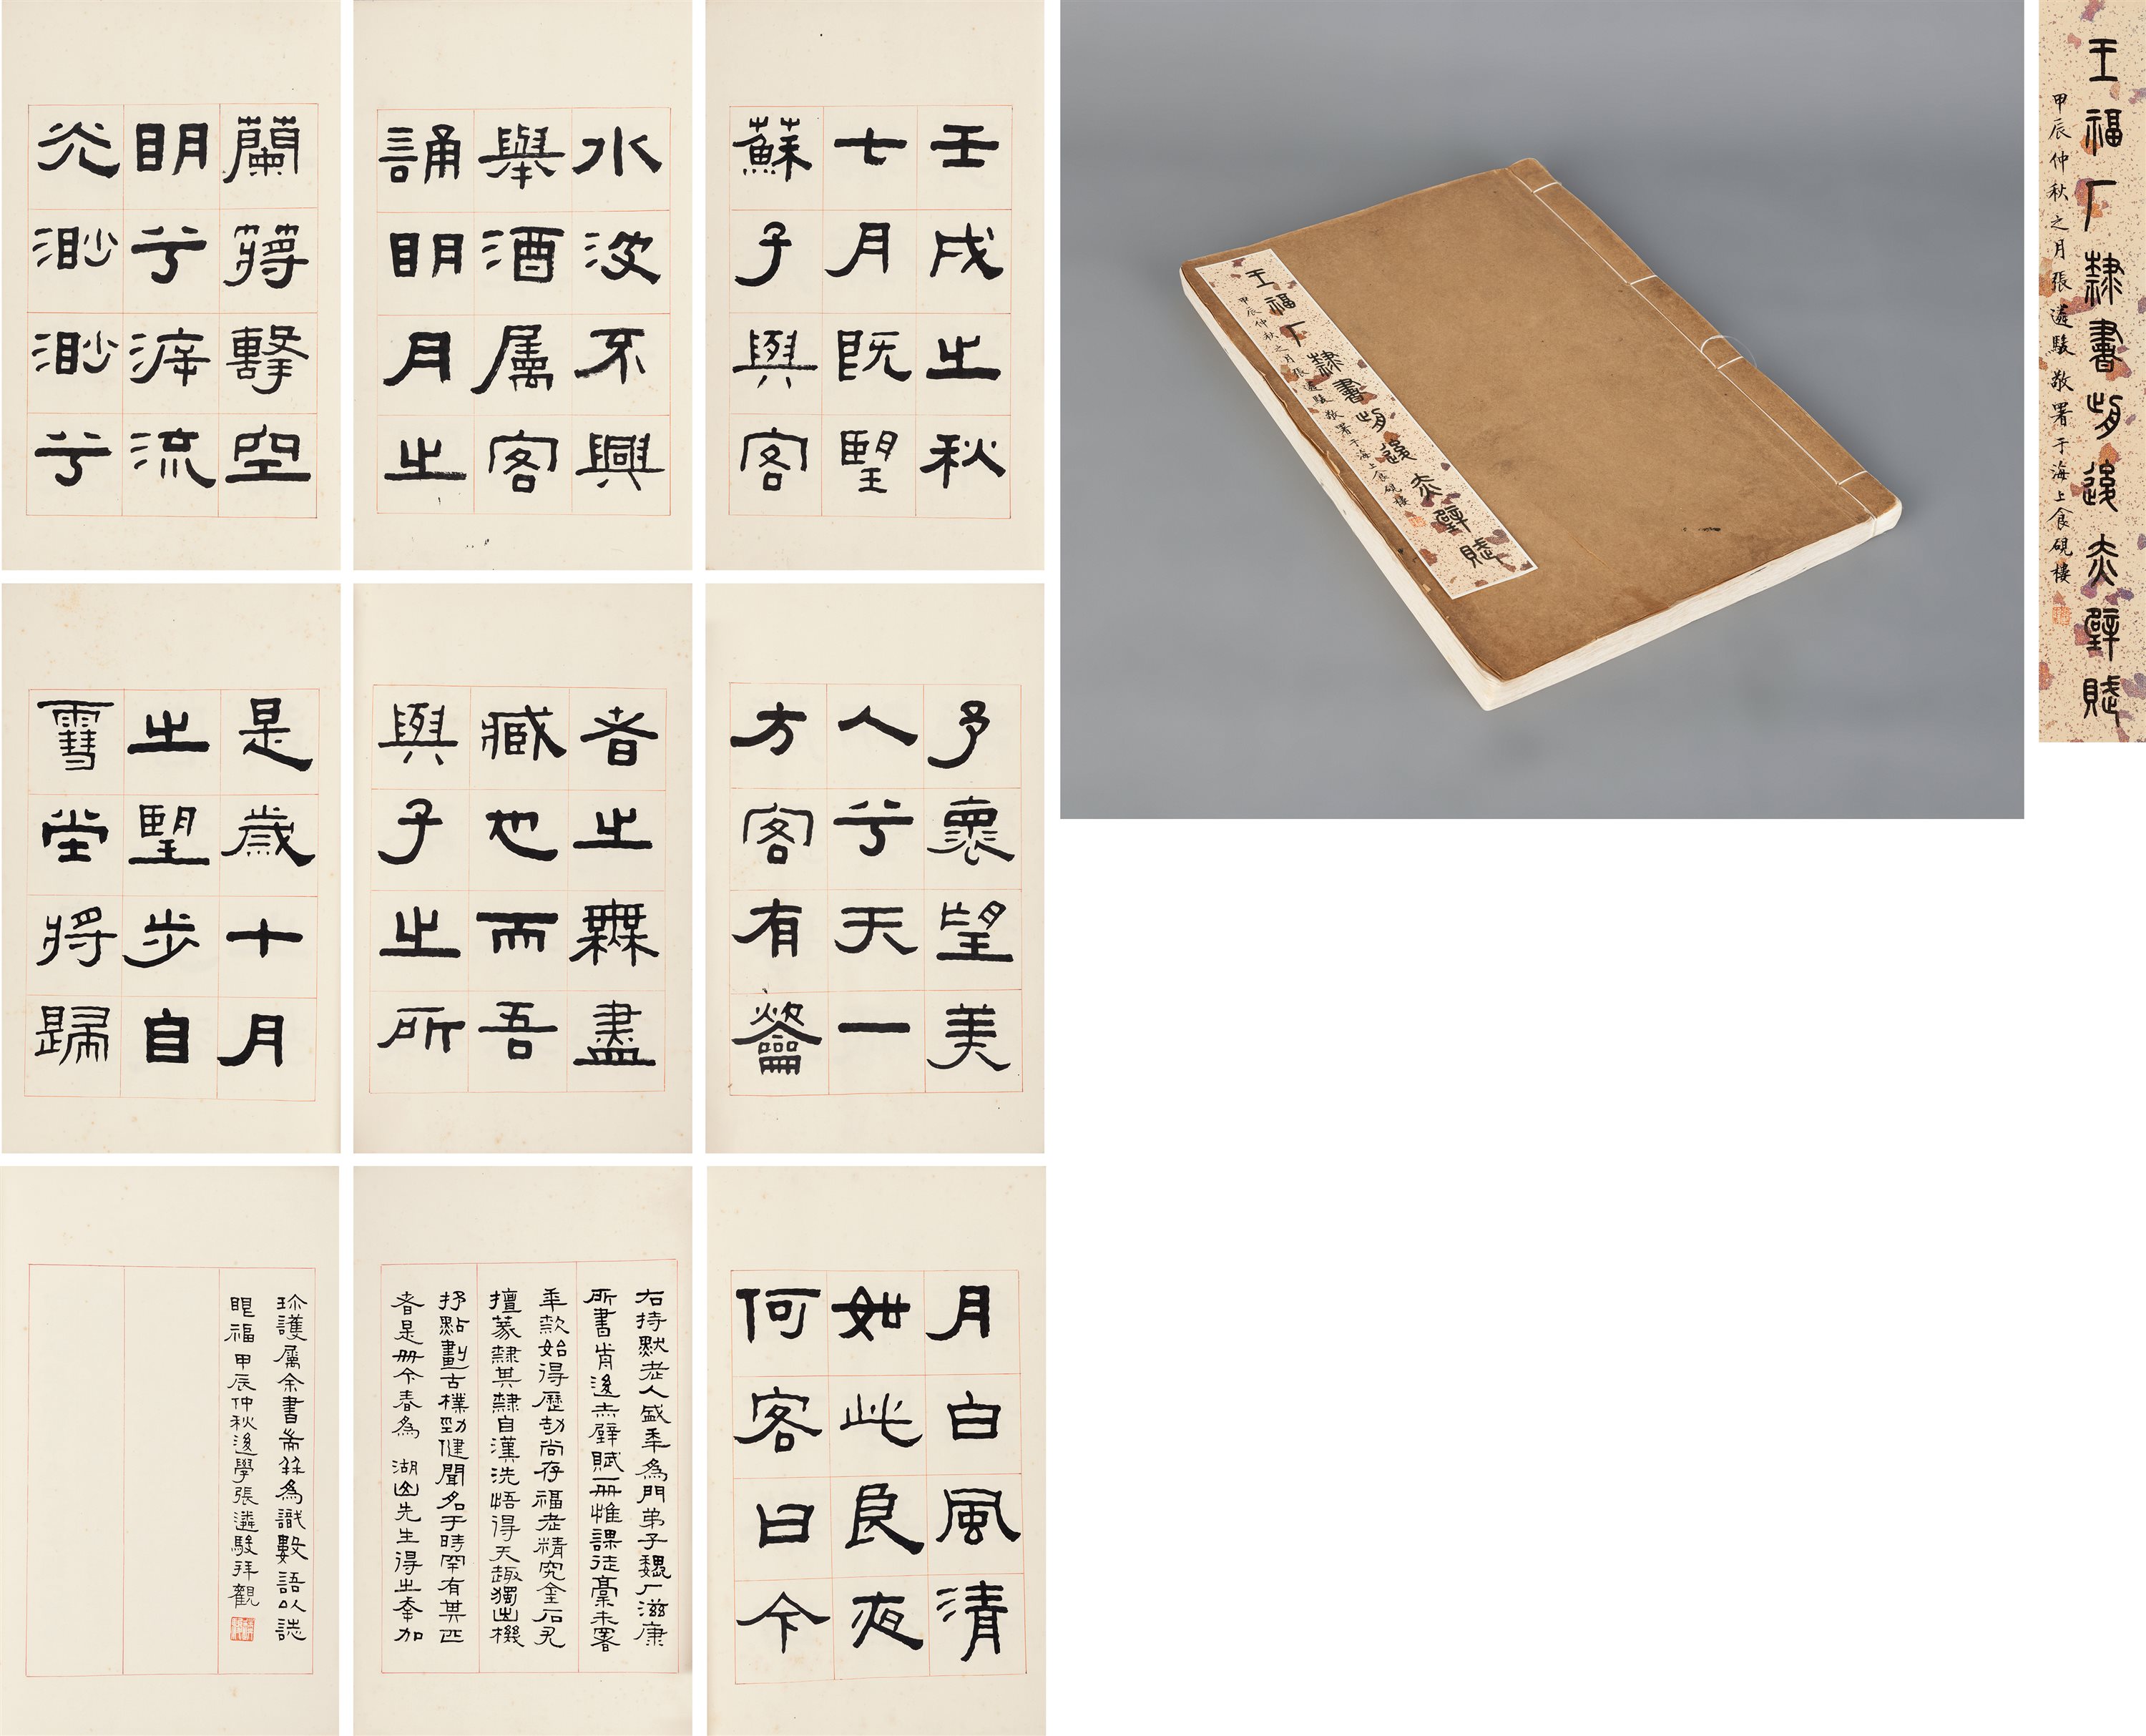 壬戌之秋
七月既望
蘇子與客
水波不興
舉酒屬客
誦明月之
蘭蔣擊空
明兮溯流
光渺渺兮
予褱望美
人兮天一
方客有龡
者之無盡
臧也而吾
與子之所
是歲十月
之望步自
雪堂將歸
月白風清
如此良夜
何客曰今
右持默老人盛年為門弟子魏厂滋康
所書前後赤壁賦一冊惟課徒稾未署
年款始得歷劫尚存福老精究金石尤
擅篆隸其隸自漢洗悟得天趣獨出機
抒點畫古樸勁健聞名于時罕有其匹
者是冊今春為 湖山先生得之奉加
珍護屬余書耑并為識數語以誌
眼福甲辰仲秋後學張遴駿拜觀
王福厂隸書前後赤壁賦
甲辰仲秋之月張遴駿敬署于海上食硯樓
王福厂隸書前後赤壁賦
甲辰仲秋之月張遴駿敬署于海上食硯樓